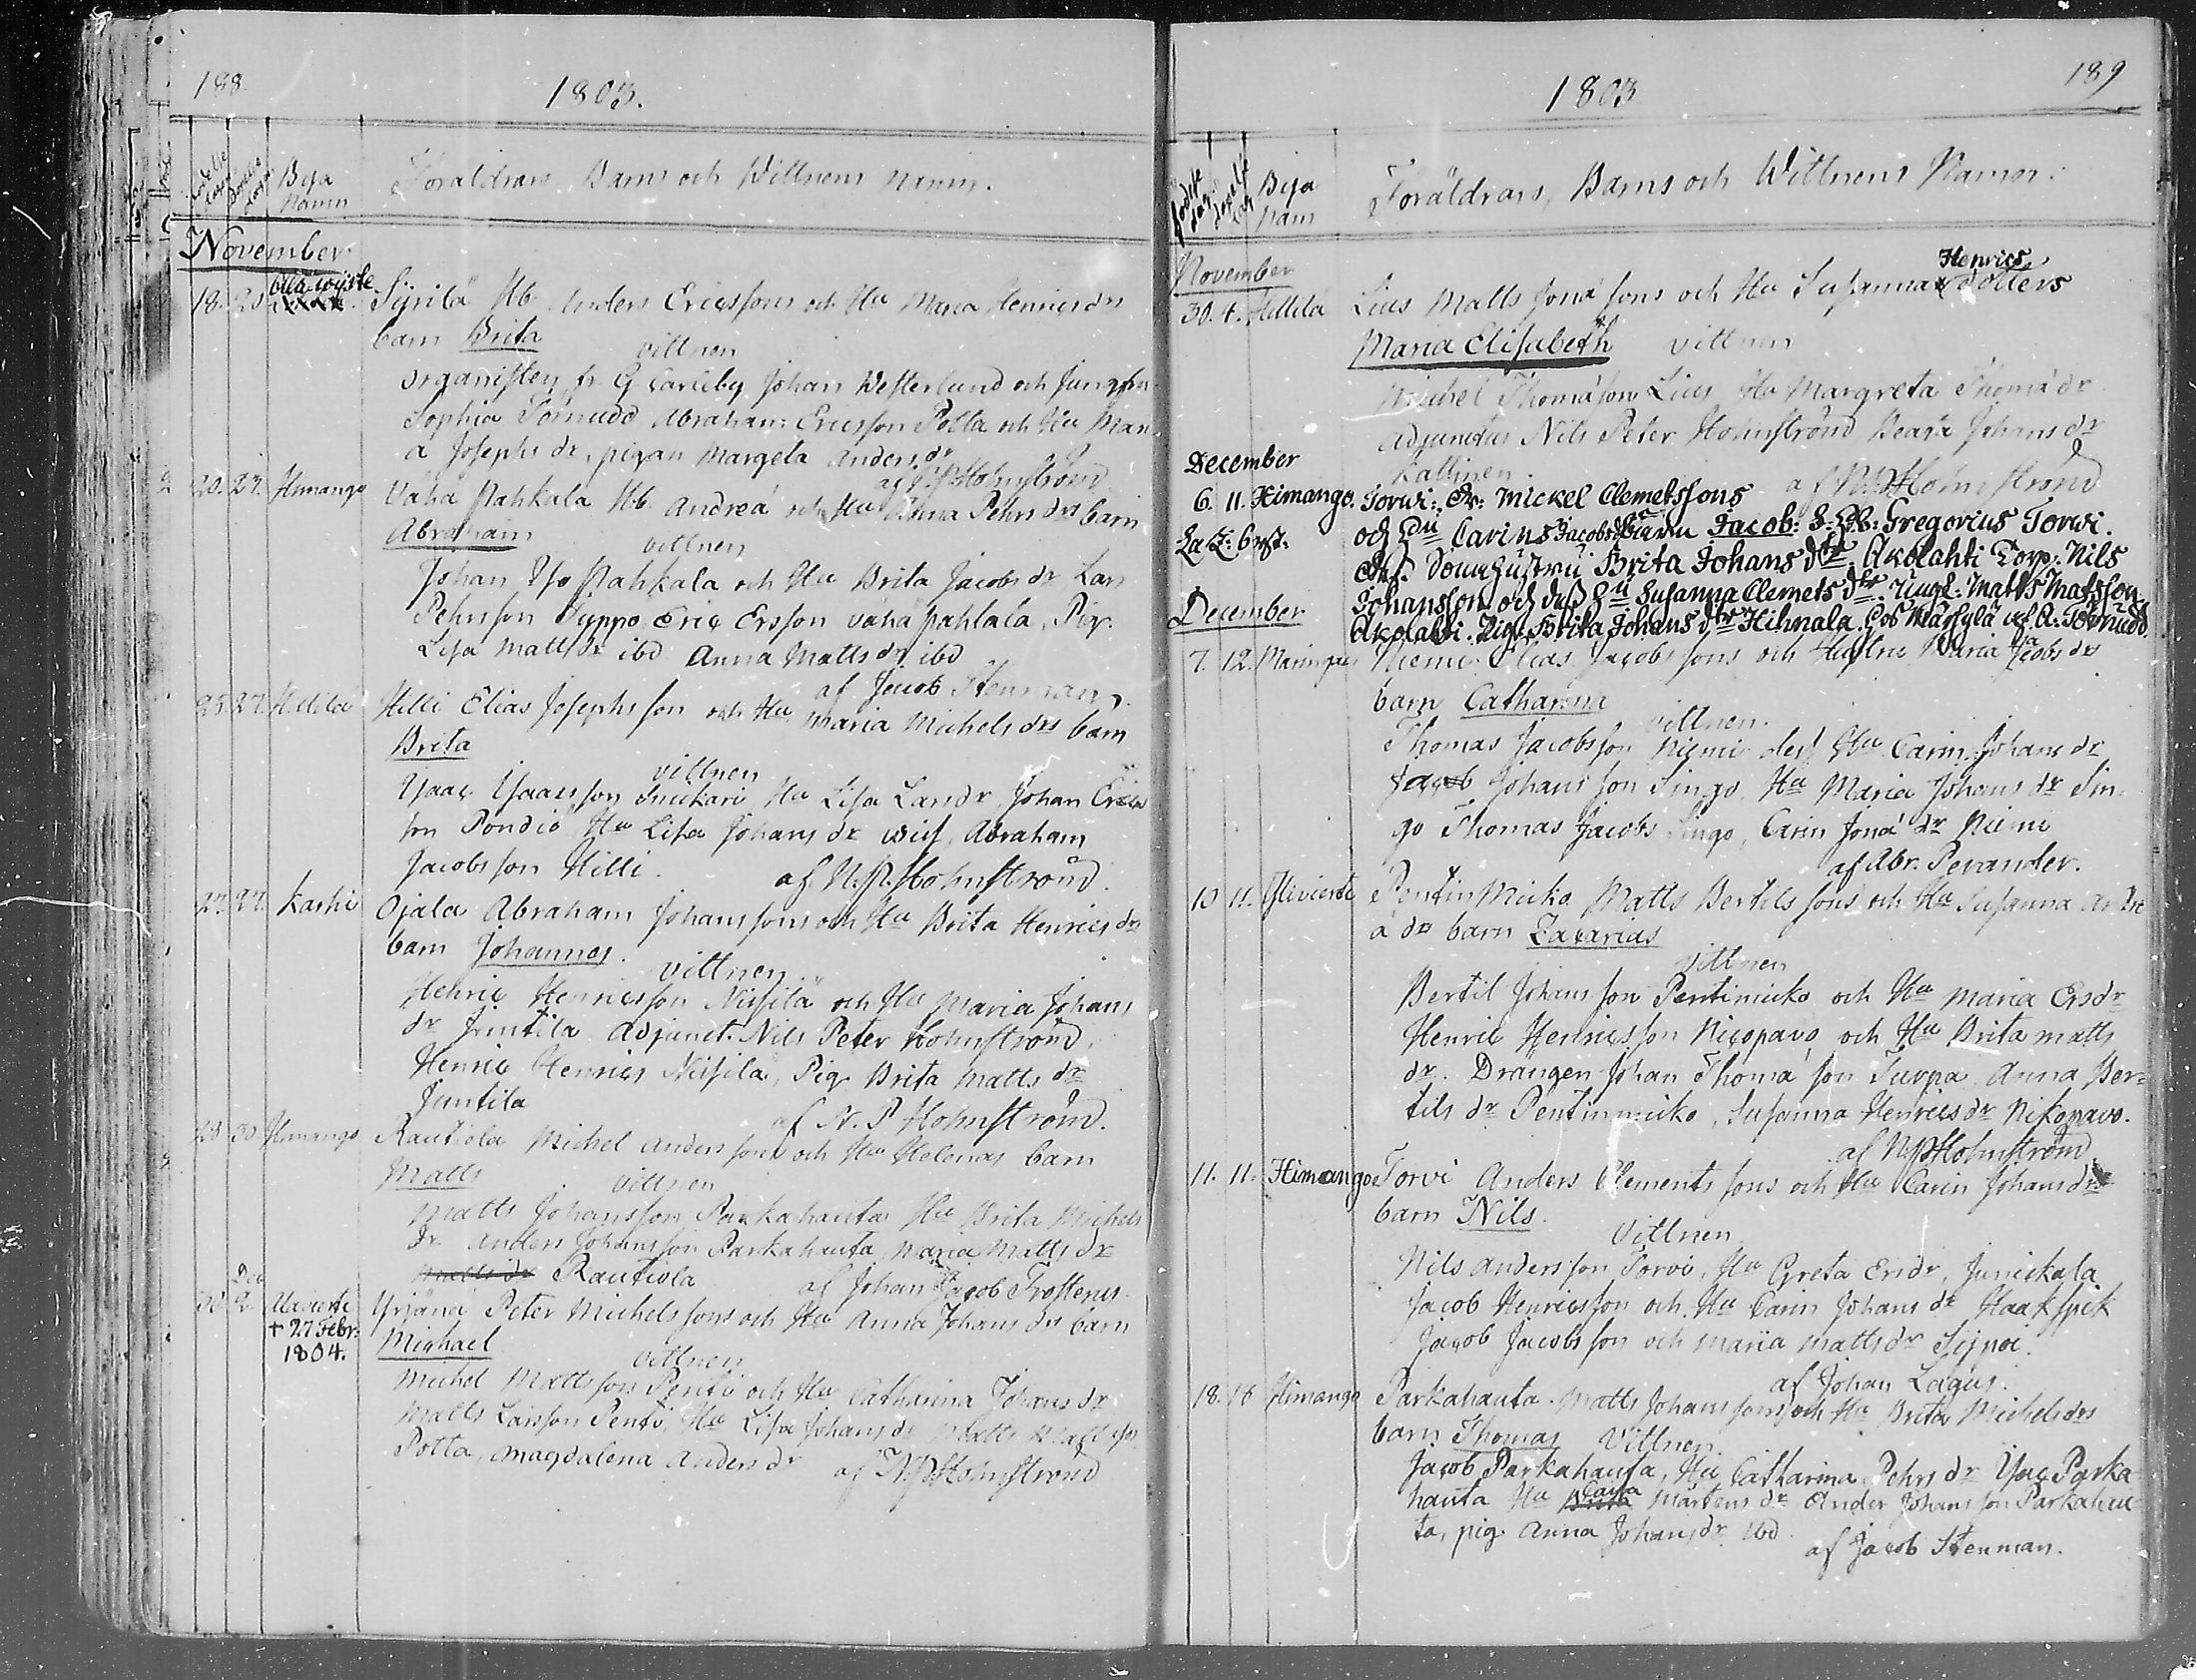 188.
1803.
Födelse dagen
Döpelse dagen
Bya Namn
Föräldrars, Barns och Wittnens namn.
November
18. 20. Syrilä Hb. Anders Ericssons och Hu Maria Henrics drs
barn Brita
vittnen
Organisten fr G Carleby Johan Westerlund och Jungfru
Sophia Törnudd Abraham Ericsson Potta och Hu Mari
a Josephs dr, pigan Margeta Anders dr
af N P Holmström
20. 27. Himango Vähä Pahkala Hb. Andreä och Hu Anna Pehrs drs barn
Abraham
vittnen
Johan Yso Pahkala och Hu Brita Jacobs dr Lars
Pehrsson Tuppo Eric Ersson vähä pahkala, Pig.
Lisa Matts dr ibd Anna Matts dr ibd
af Jacob Stenman.
25. 27. Hillilä Hilli Elias Josephs son och Hu Maria Michels drs barn
Brita
vittnen
Ysaac Ysaacsson Hu Lisa Lars dr, Johan Erics
son Pondio Hu Lisa Johans dr Abraham
Jacobs son Hilli. af N. P. Holmström.
27. 27. Karhi Ojala Abraham Johanssons och Hu Brita Henrics drs
barn Johannes.
vittnen.
Henric Henricsson Niisilä och Hu Maria Johans
dr Juntila. Adjunct. Nils Peter Holmström,
Henric Henrics Niisilä, Pig Brita Matts dr
Juntila
af N. P Holmström.
28 30 Himango Rautiola Michel Anders sons och Hu Helenas barn
Matts
vittnen
Matts Johansson Parkahauta Hu Brita Michels
dr Anders Johansson Parkahauta, Maria Matts dr
Matts dr Rautiola af Johan Jacob Frosterus.
Dec
30. 2. Yrjänä Peter Michels sons och Hu Anna Johans drs barn
† 27 Febr:
1804.
Michael
vittnen
Michel Matts son Pentti och Hu Catharina Johans dr
Matts Larsson Penti, Hu Lisa Johans dr Matts Matts son
Potta, Magdalena Anders dr af N P Holmström
189
1803
födelse dag
döpelse dag
Bya Namn
Föräldrars, Barns och Wittnens Namn.
November
Henrics
30. 4. Hillilä Lius Matts Jonä sons och Hu Susanna dotters
Maria Elisabeth vittnen
Michel Thomäson Lius, Hu Margreta Thomä dr
Adjunctus Nils Peter Holmström Beata Johans dr
Kallinen. af N P Holmström
December
6. 11. Himango. Torwi: Mickel Clemetssons
och Hu Carins Jacobs dr Barn Jacob: Gregorius Torwi.
Brita Johans dtr. Akolahti Torp: Nils
Johansson och dess Hu Susanna Clemets dtr. Yngl: Matts Matsson
Akolahti. Pig: Brita Johans dtr Hihnala. af A: Törnudd.
December
7. 12. Maringais Niemi Elias Jacobs sons och Hustru Maria Jacobs drs
barn Catharina
vittnen.
Thomas Jacobsson Niemi dess Hu Carin Johans dr
Jacob Johans son Singo. Hu Maria Johans dr Sin-
go Thomas Jacobs Singo, Carin Jonä dr Niemi
af Abr. Perander.
10 11. Ylivierte Pentin Micko Matts Bertils sons och Hu Susanna Andre
ä drs barn Zacarias
vittnen
Bertil Johans son Pentimicko och Hu Maria Ersdr
Henric Henricsson Nicopavo och Hu Brita Matts
dr. Drängen Johan Thomä son Anna Ber-
tils dr Pentinmicko, Susanna Henrics dr Nikopavo.
af N P Holmström.
11. 11. Himango Torvi Anders Clements sons och Hu Carin Johans drs
barn Nils.
Vittnen.
Nils Andersson Torvi, Hu Greta Ersdr, Junickala
Jacob Henricsson och Hu Carin Johans dr Haakspik
Jacob Jacobs son och Maria Matts dr Sippoi.
af Johan Lagus.
18. 18 Himango Parkahauta. Matts Johans sons och Hu Brita Michels drs
barn Thomas Vittnen.
Jacob Parkahauta, Hu Catharina Pehrs dr Ysac Parka-
hauta Hu Brita Carin Mårtens dr Ander Johans son Parkahau-
ta, pig. Anna Johans dr. ibd.
af Jacob Stenman.